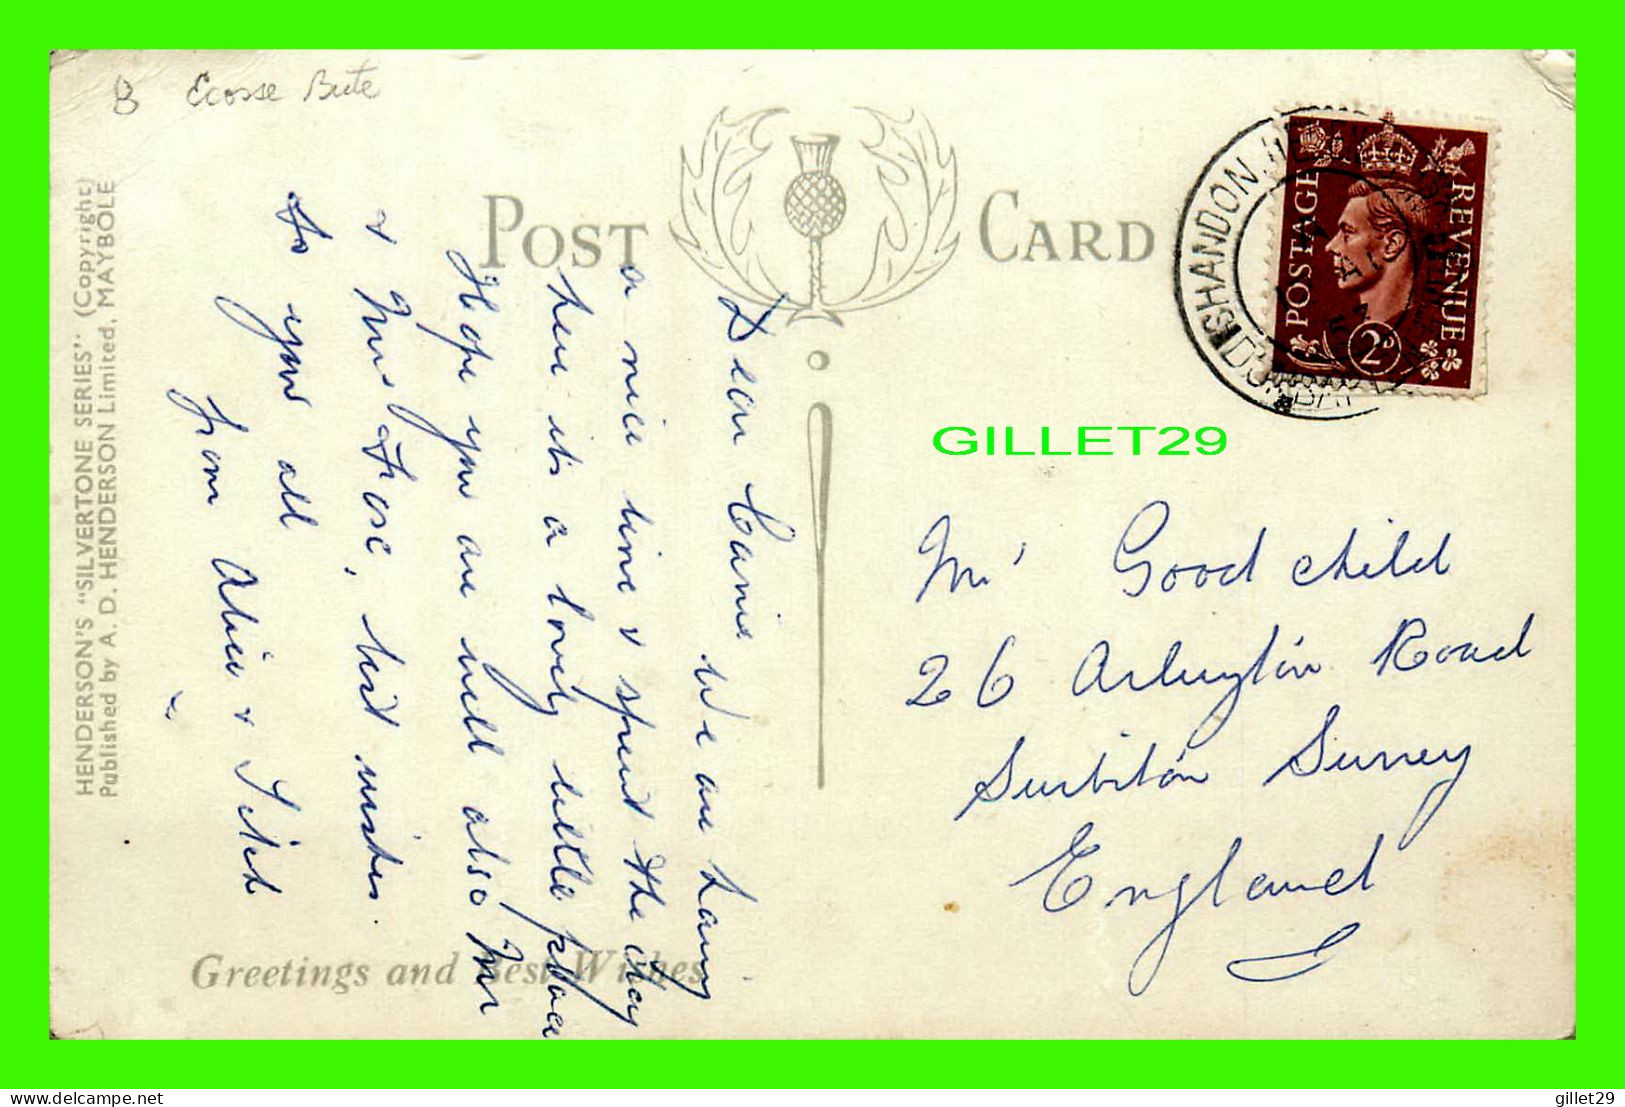 B Ecosse Bute
POST CARD
HENDERSON'S "SILVERTONE SERIES" (Copyright)
Published by A. D. HENDERSON Limited, MAYBOLE
POSTAGE REVENUE
2D
SHANDON
GILLET29
Dear Carrie We are having
a nice time & spent the day
here its a lovely little place
Hope you are well also Mr
& Mrs Fose, best wishes.
to you all
from Alice & Nick
Greetings and Best Wishes
Mrs Goodchild
26 Arlington Road
Surbiton Surrey
England
https://www.delcampe.net
gillet29